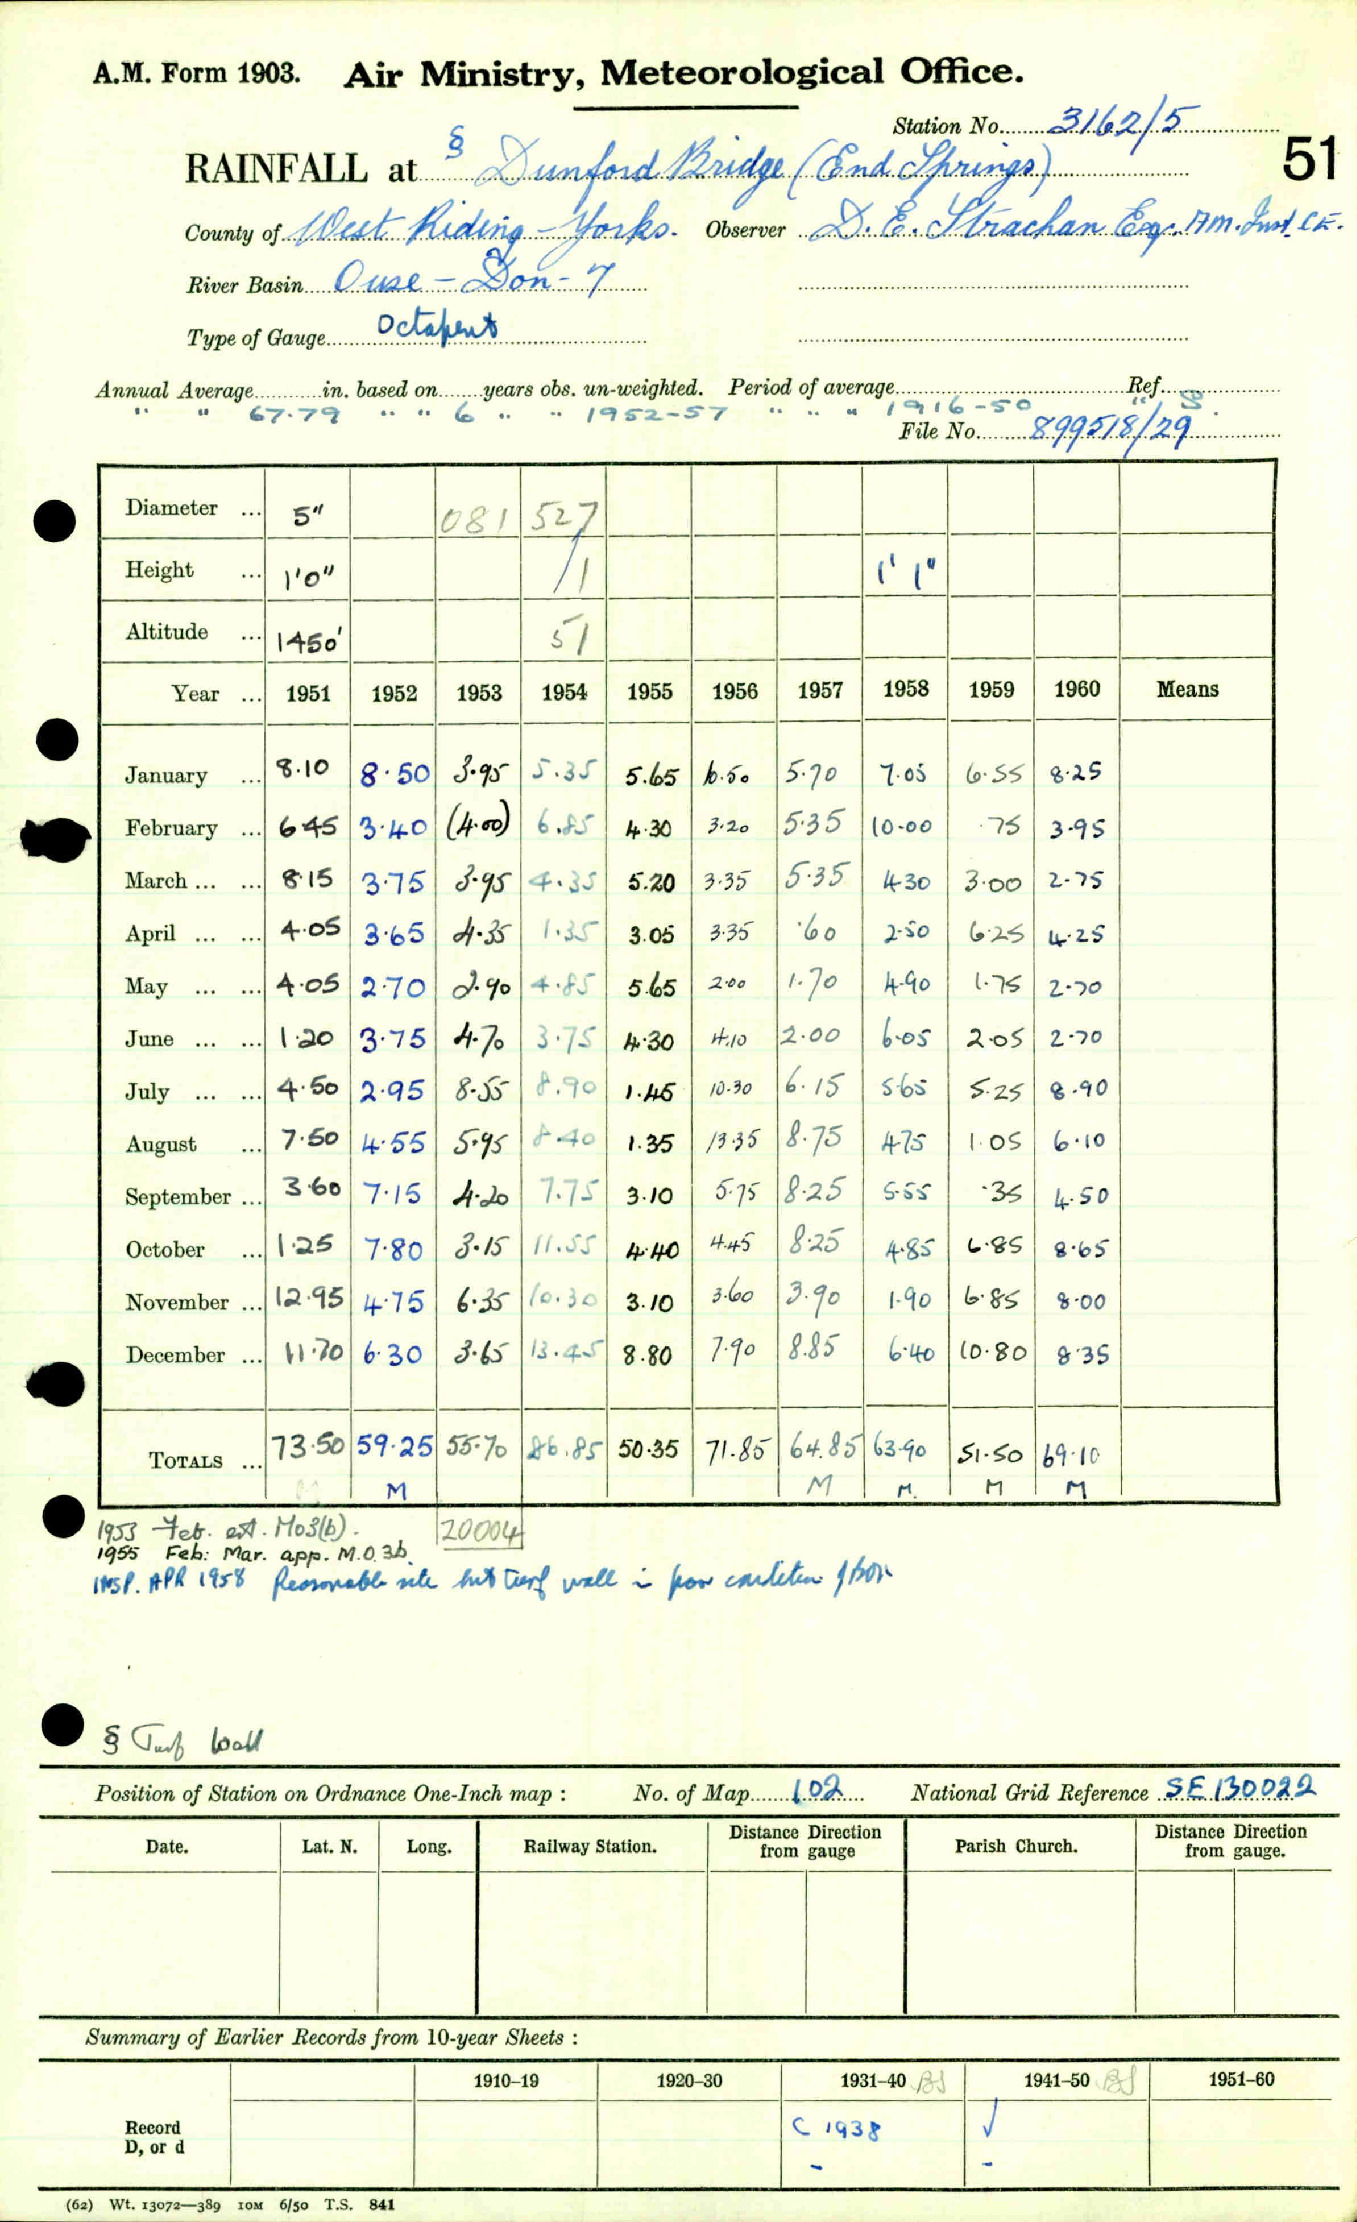 A.M. Form 1903. Air Ministry, Meteorological Office.
Station No. 3162/5
51
RAINFALL at § Dunford Bridge (End Springs)
County of West Riding - Yorks. Observer D. E. Strachan Esq. A.M. Inst. C.E.
River Basin Ouse - Don - 7
Type of Gauge Octapent
Annual Average in. based on years obs. un-weighted. Period of average Ref.
" " 67.79 " " 6 " " 1952-57 " " " 1916-50 " S.
File No. 899518/29
Diameter ... 5" 081 527
Height ... 1'0" /1 1' 1"
Altitude ... 1450' 51
Year ... 1951 1952 1953 1954 1955 1956 1957 1958 1959 1960 Means
January ... 8.10 8.50 3.95 5.35 5.65 6.50 5.70 7.05 6.55 8.25
February ... 6.45 3.40 (4.00) 6.85 4.30 3.20 5.35 10.00 .75 3.95
March ... ... 8.15 3.75 3.95 4.35 5.20 3.35 5.35 4.30 3.00 2.75
April ... ... 4.05 3.65 4.35 1.35 3.05 3.35 .60 2.50 6.25 4.25
May ... ... 4.05 2.70 2.90 4.85 5.65 2.00 1.70 4.90 1.75 2.70
June ... ... 1.20 3.75 4.70 3.75 4.30 4.10 2.00 6.05 2.05 2.70
July ... ... 4.50 2.95 8.55 8.90 1.45 10.30 6.15 5.65 5.25 8.90
August ... 7.50 4.55 5.95 8.40 1.35 13.35 8.75 4.75 1.05 6.10
September ... 3.60 7.15 4.20 7.75 3.10 5.75 8.25 5.55 .35 4.50
October ... 1.25 7.80 3.15 11.55 4.40 4.45 8.25 4.85 6.85 8.65
November ... 12.95 4.75 6.35 10.30 3.10 3.60 3.90 1.90 6.85 8.00
December ... 11.70 6.30 3.65 13.45 8.80 7.90 8.85 6.40 10.80 8.35
TOTALS ... 73.50 59.25 55.70 86.85 50.35 71.85 64.85 63.90 51.50 69.10
M M M M. M M
1953 Feb. est. MO3(b). 20004
1955 Feb: Mar. app. M.O.3b.
INSP. APR 1958 Reasonable site but turf wall in poor condition
§ Turf Wall
Position of Station on Ordnance One-Inch map : No. of Map 102 National Grid Reference SE 130022
Date. Lat. N. Long. Railway Station. Distance from Direction gauge Parish Church. Distance from Direction gauge.
Summary of Earlier Records from 10-year Sheets :
1910–19 1920–30 1931–40 1941–50 1951–60
Record C 1938 √
D, or d - -
(62) Wt. 13072—389 10M 6/50 T.S. 841